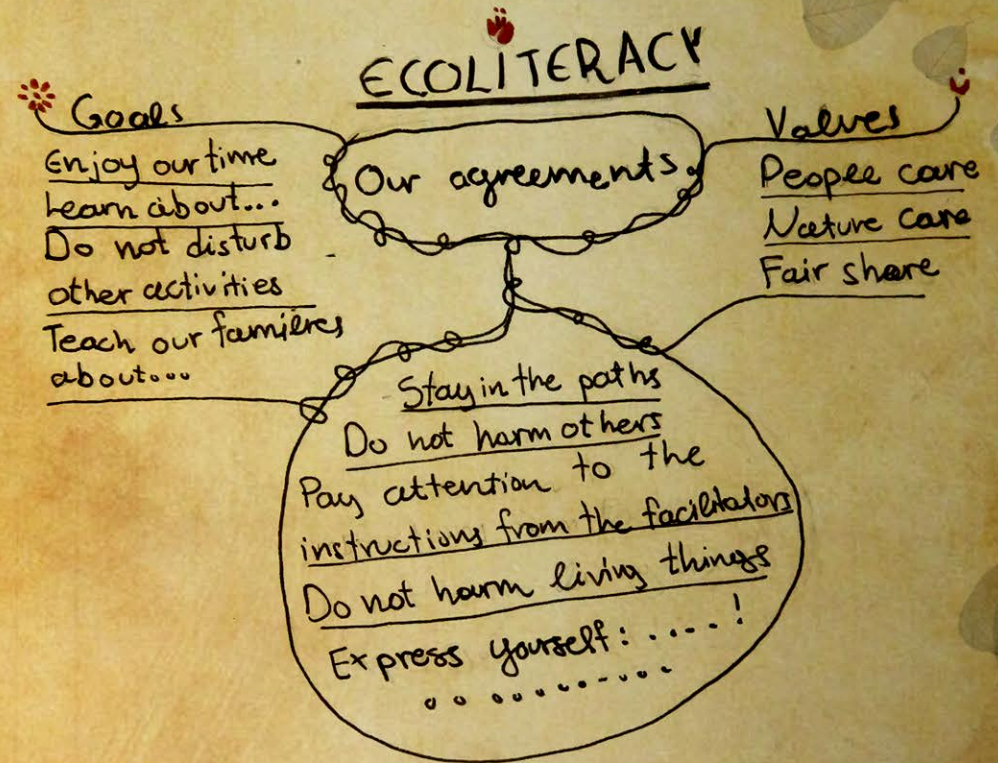 ECOLITERACY
Our agreements
Goals
Enjoy our time
Learn about...
Do not disturb
other activities
Teach our families
about...
Values
People care
Nature care
Fair share
Stay in the paths
Do not harm others
Pay attention to the
instructions from the facilitators
Do not harm living things
Express yourself: .....!
..........